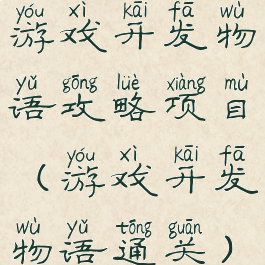 yóu xì kāi fā wù
游戏开发物
yǔ gōng lüè xiàng mù
语攻略项目
yóu xì kāi fā
（游戏开发
wù yǔ tōng guān
物语通关）